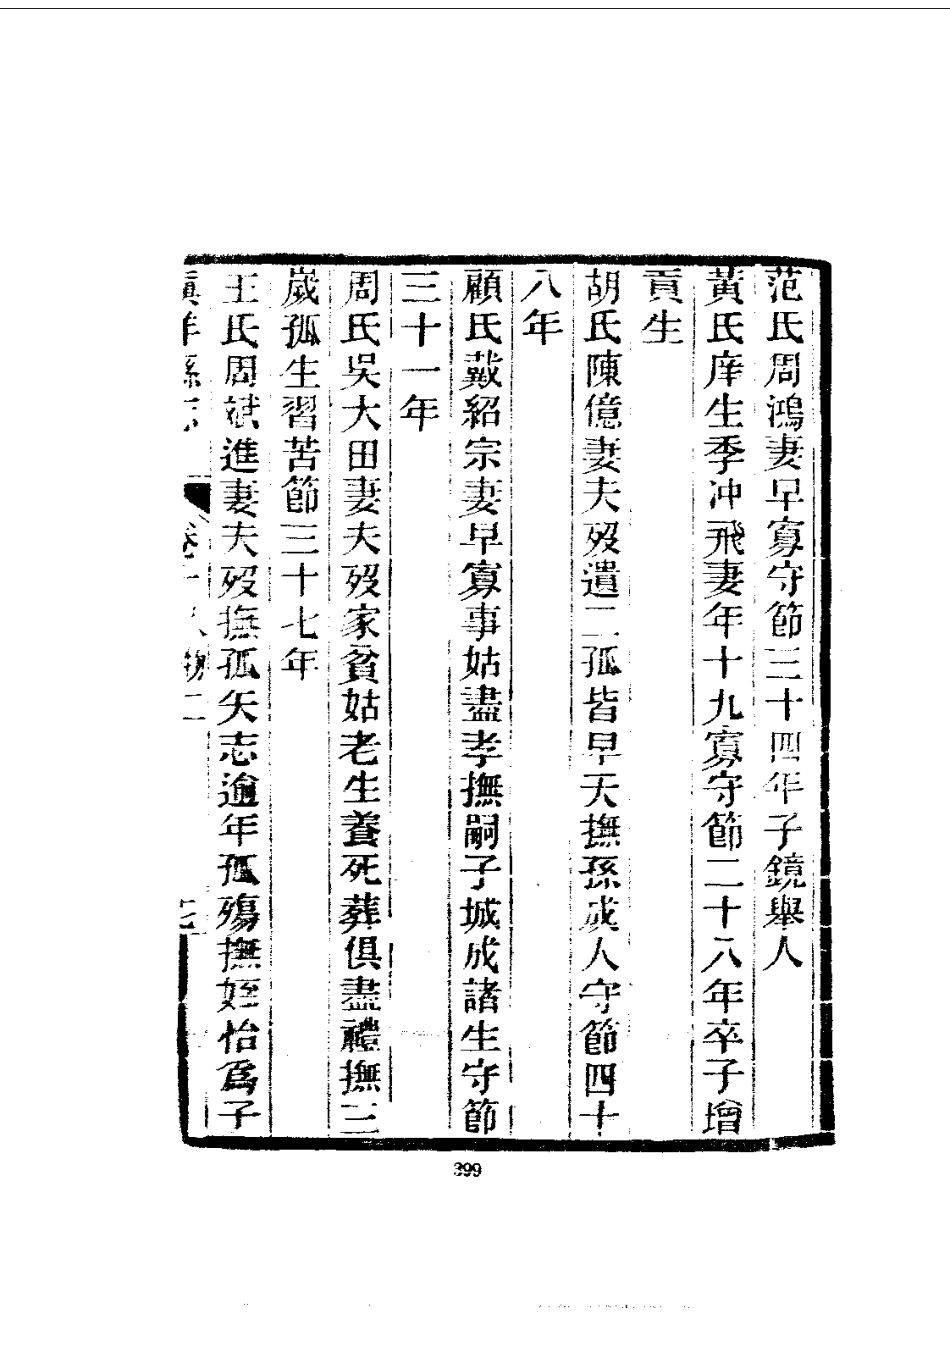 范氏周鴻妻早寡守節三十四年子鏡舉人
黃氏庠生季冲飛妻年十九寡守節二十八年卒子增
貢生
胡氏陳億妻夫歿遺二孤皆早夭撫孫成人守節四十
八年
顧氏戴紹宗妻早寡事姑盡孝撫嗣子城成諸生守節
三十一年
周氏吳大田妻夫歿家貧姑老生養死葬俱盡禮撫三
歲孤生習苦節三十七年
王氏周斌進妻夫歿撫孤矢志逾年孤殤撫姪怡爲子
縣志
卷十 人物二
399